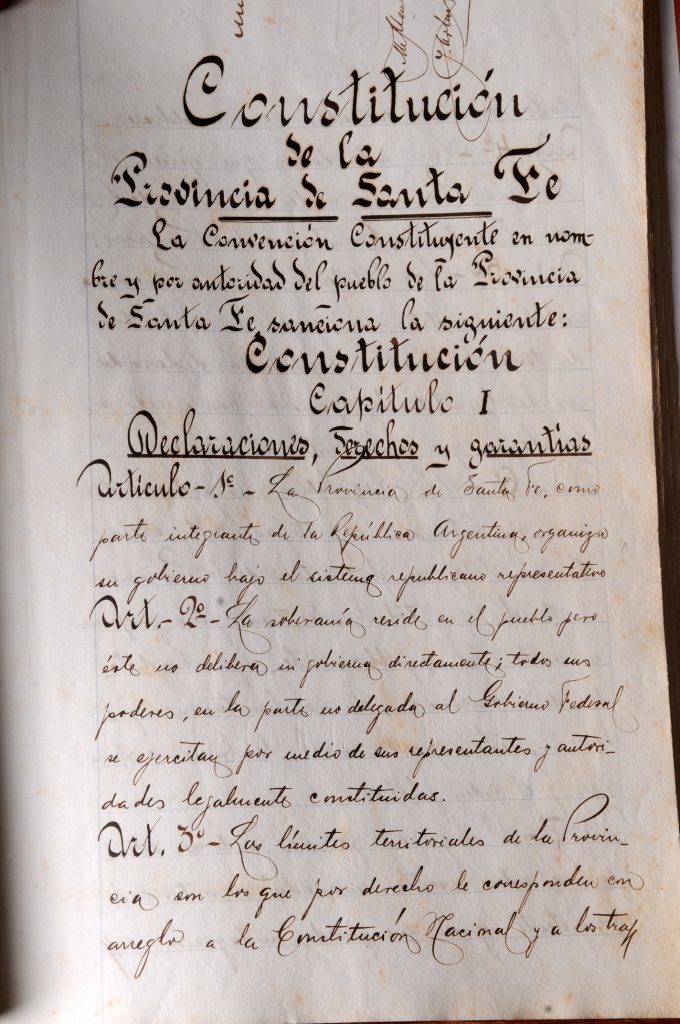 Constitución
de la
Provincia de Santa Fe
La Convención Constituyente en nom-
bre y por autoridad del pueblo de la Provincia
de Santa Fe, sanciona la siguiente:
Constitución
Capítulo I
Declaraciones, derechos y garantías
Artículo-1º- La Provincia de Santa Fe, como
parte integrante de la República Argentina, organiza
su gobierno bajo el sistema republicano representativo
Art.-2º- La soberanía reside en el pueblo pero
éste no delibera ni gobierna directamente; todos sus
poderes, en la parte no delegada al Gobierno Federal
se ejercitan por medio de sus representantes y autori-
dades legalmente constituidas.
Art. 3º- Los límites territoriales de la Provin-
cia son los que por derecho le corresponden con
arreglo a la Constitución Nacional y a los